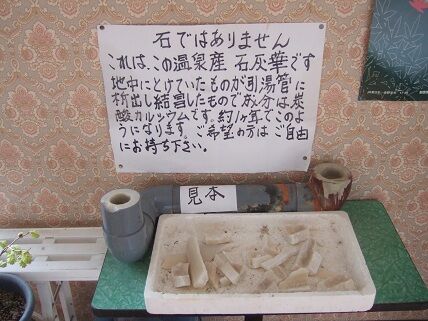 石ではありません
これは、この温泉産 石灰華です
地中にとけていたものが引湯管に
析出し結晶したもので成分は炭
酸カルシウムです。約1ヶ年でこのよ
うになります。ご希望の方はご自由
にお持ち下さい。
見本